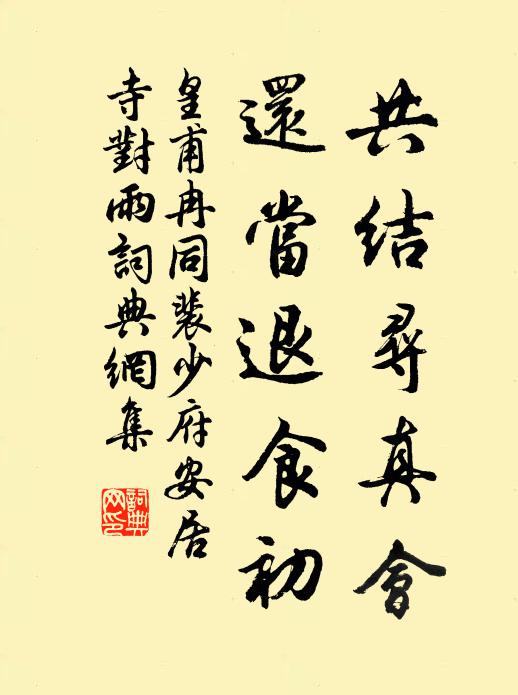 共结尋真會
還當退食初
皇甫冉同裴少府安居
寺對雨詞典網集
詞典
网印